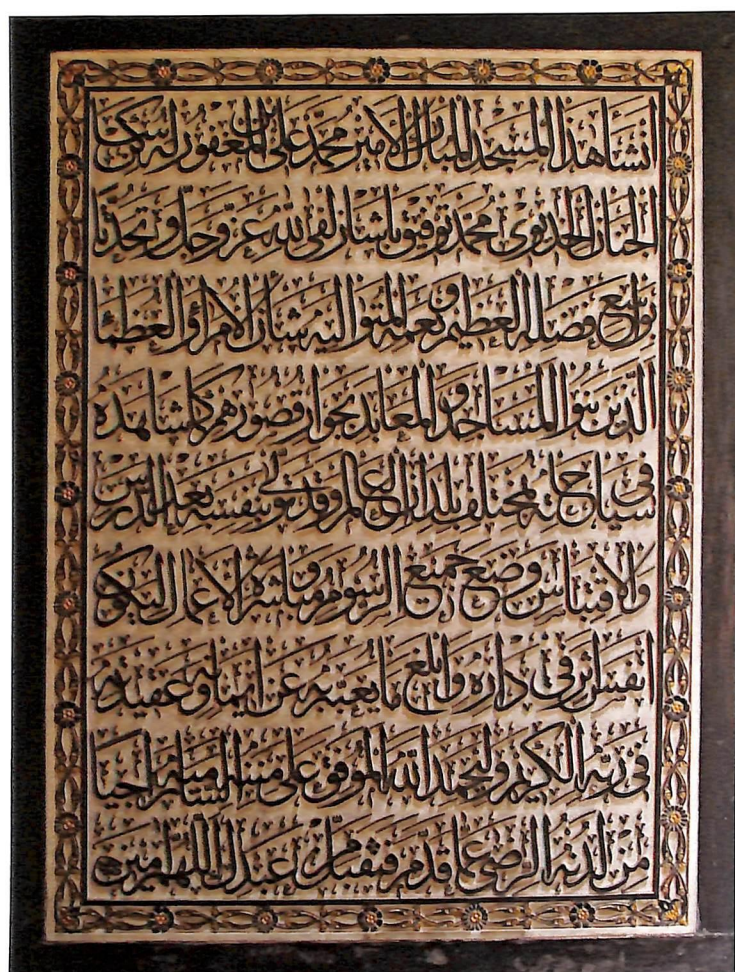 انشأ هذا المسجد المبارك الامير محمد على ابن المغفور له ساكن
الجنان الخديوى محمد توفيق باشا زلفى لله عز وجل وتحدثا
بواسع فضله العظيم ونعمه المتوالية شأن الامراء والعظماء
الذين بنوا المساجد والمعابد بجوار قصورهم كما شاهده
فى سياحاته بمختلف بلدان العالم وقد تولى بنفسه بعد الدرس
والاقتباس وضع جميع الرسوم ومباشرة الاعمال ليكون
انفس اثر فى داره وابلغ ما يعبر به عن ايمانه وعقيدته
فى ربه الكريم وليحمد الله الموفق على منته السامية راجيا
من لدنه الرضى عما قدم فتقبل من عبدك اللهم امين